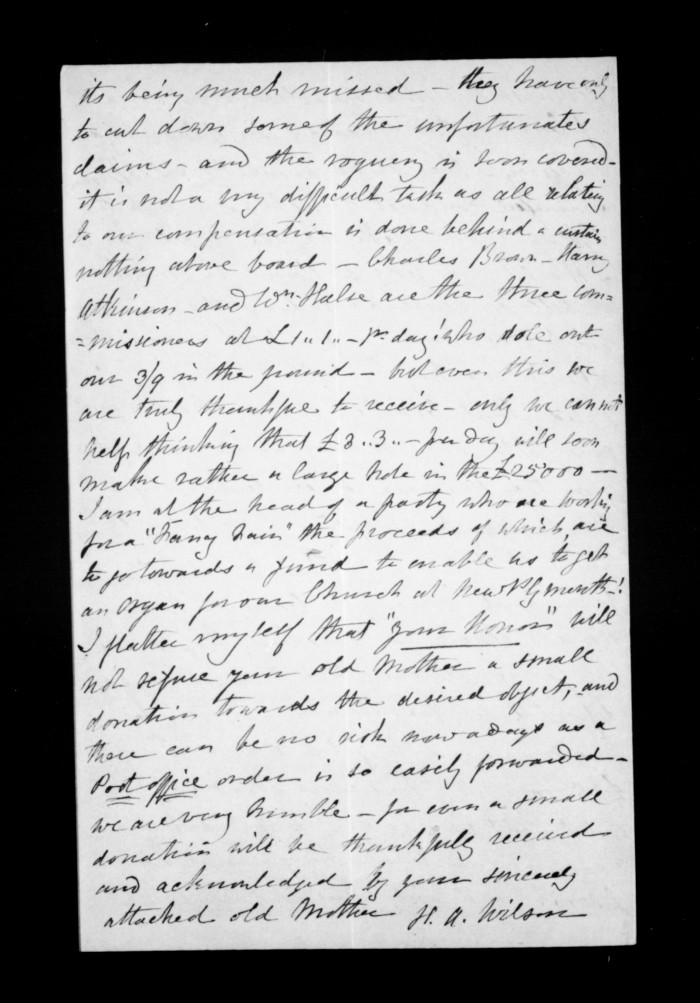 its being much missed – they have only
to cut down some of the unfortunates
claims – and the roguery is soon covered –
it is not a very difficult task as all relating
to our compensation is done behind a curtain
nothing above board – Charles Brown – Harry
Atkinson – and Wm. Halse are the three com=
=missioners at £1..1..– pr. day! who dole out
our 3/9 in the pound – but even this we
are truly thankful to receive – only we cannot
help thinking that £3..3..– per day will soon
make rather a large hole in the £25000 –
I am at the head of a party who are working
for a "Fancy Fair" the proceeds of which are
to go towards a fund to enable us to get
an Organ for our Church at New Plymouth –!
I flatter myself that "your Honor" will
not refuse your old Mother a small
donation towards the desired object, and
there can be no risk nowadays as a
Post office order is so easily forwarded –
we are very humble – for even a small
donation will be thankfully received
and acknowledged by your sincerely
attached old Mother H. A. Wilson